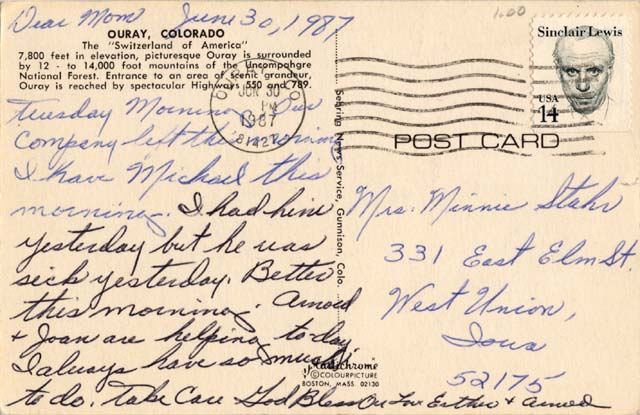 Dear Mom June 30, 1987
OURAY, COLORADO
The "Switzerland of America"
7,800 feet in elevation, picturesque Ouray is surrounded
by 12 - to 14,000 foot mountains of the Uncompahgre
National Forest. Entrance to an area of scenic grandeur,
Ouray is reached by spectacular Highways 550 and 789.
Tuesday Morning. Our
Company left this morning
I have Michael this
morning. I had him
yesterday but he was
sick yesterday. Better
this morning. Arnold
& Joan are helping today
I always have so much
to do. Take Care God Bless Our Love Esther & Arnold
OURAY, CO
JUN 30
PM
1987
81427
Sehring News Service, Gunnison, Colo.
Plastichrome
© COLOURPICTURE
BOSTON, MASS. 02130
1.00
Sinclair Lewis
USA
14
POST CARD
Mrs. Minnie Stahr
331 East Elm St.
West Union,
Iowa
52175